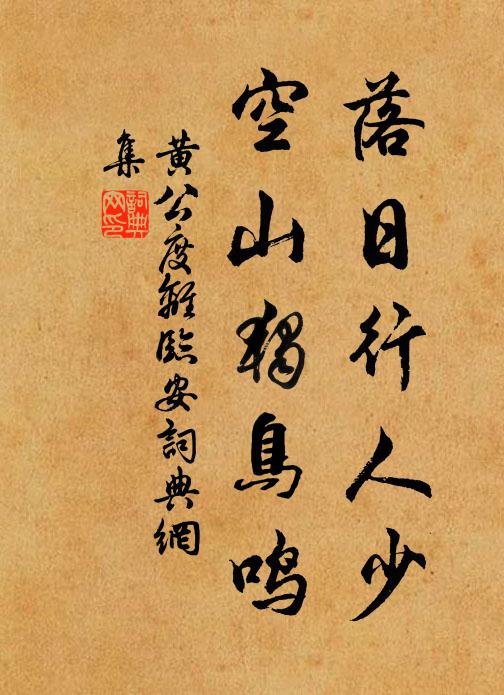 落日行人少
空山獨鳥鳴
黄公度離臨安詞典網
集
詞典
网印